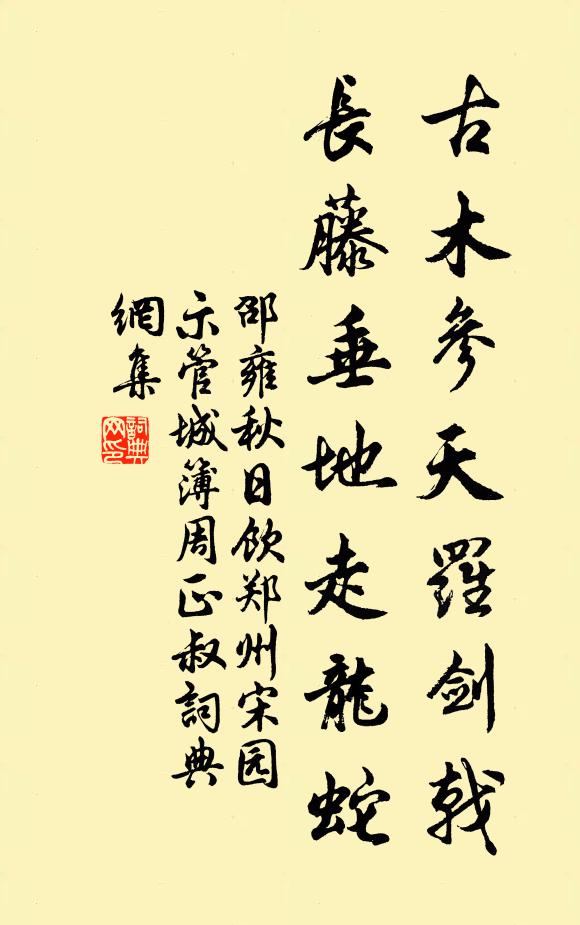 古木參天羅劍戟
長藤垂地走龍蛇
邵雍秋日飲郑州宋园
示管城簿周正叔詞典
網集
詞典網印